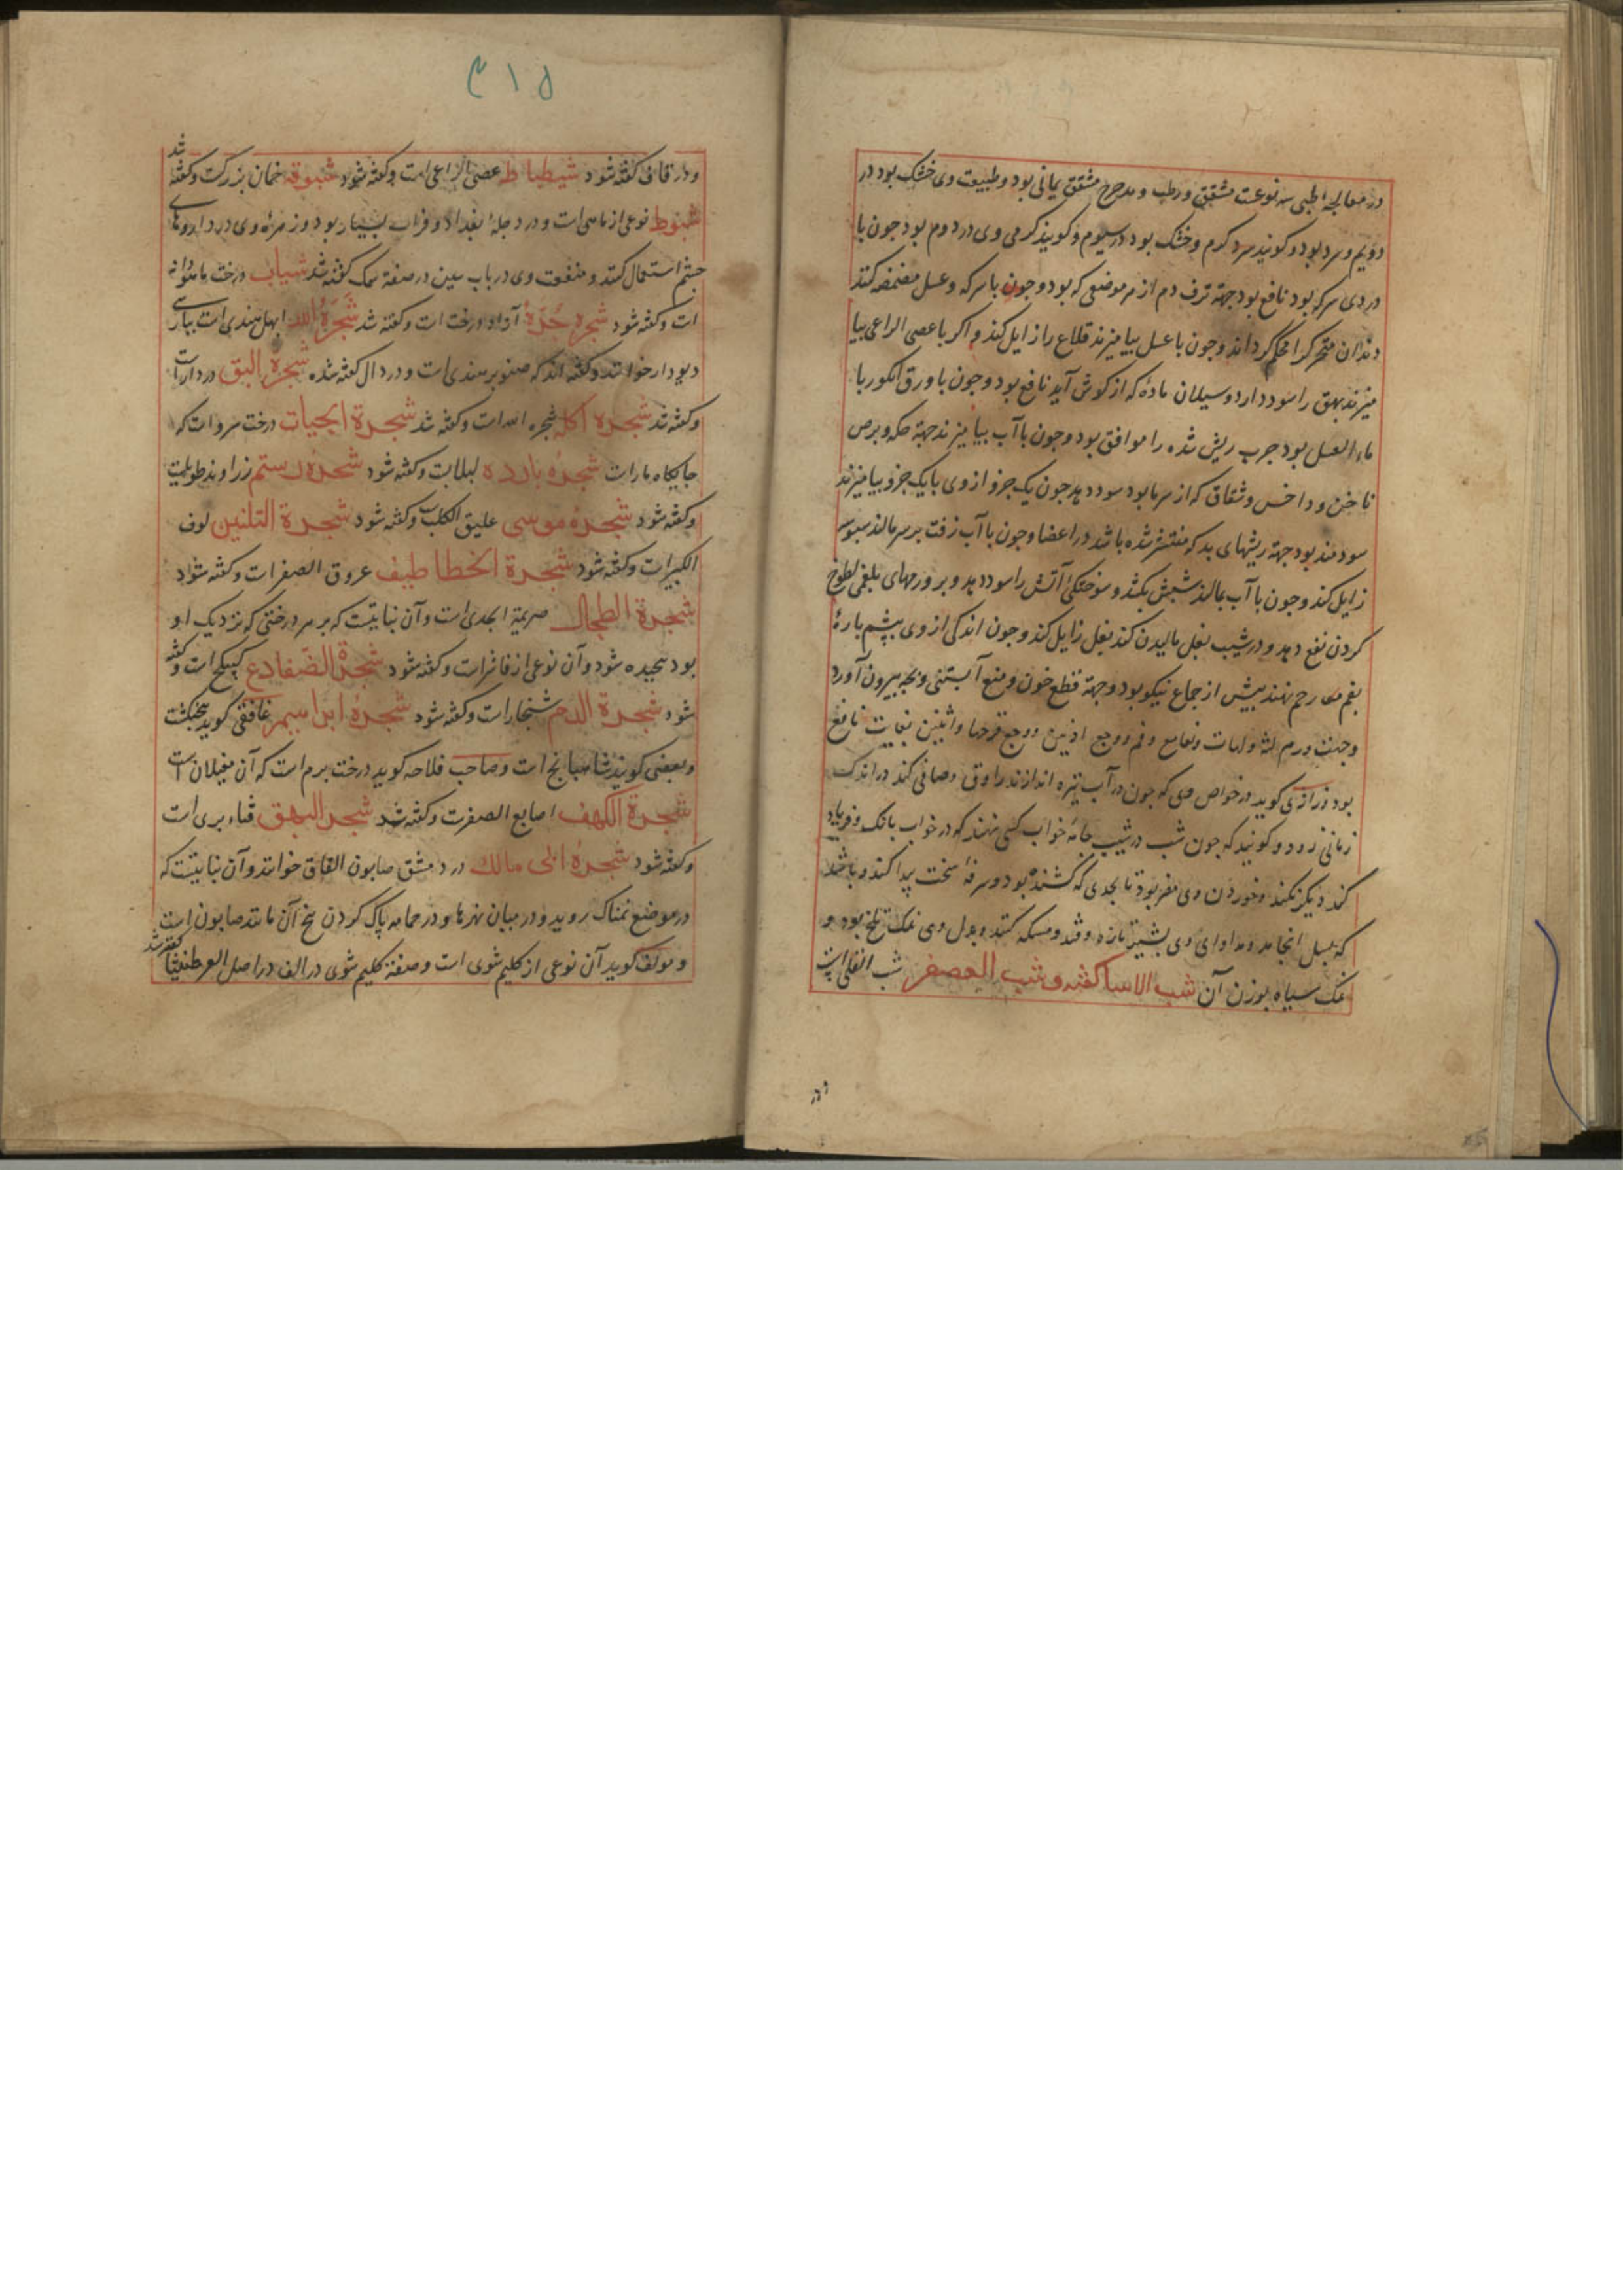 در معالجه طبی سه نوعست مشقق و رطب و مدحرج مشقق یمانی بود و طبیعت وی خشک بود در
دویم و سرد بود و کویند سرد کرم و خشک بود در سیوم و کویند کرمی وی در دوم بود جون با
دردی سرکه بود نافع بود جهة نزف دم از هر موضعی که بود و جون با سرکه و عسل مضمضه کنند
دندان متحرک را محکم کرداند و جون با عسل بیامیزند قلاع را زایل کند و اکر با عصی الراعی بیا
میزند بهق را سود دارد و سیلان ماده که از کوش آید نافع بود و جون با ورق انکور با
ماء العسل بود جرب ریش شده را موافق بود و جون با آب بیامیزند جهة حکه و برص
ناخن و داخس و شقاق که از سرما بود سود دهد جون یک جزو از وی با یک جزو بیامیزند
سودمند بود جهة ریشهای بد که منتشر شده باشد در اعضا و جون با آب زفت بر سر مالند سبوسه
زایل کند و جون با آب بمالند شپش بکشد و سوختکی آتش را سود دهد و بر ورمهای بلغمی لطوخ
کردن نفع دهد و در شیب بغل مالیدن کند بغل زایل کند و جون اندکی از وی بپشم پارهٔ
بفم رحم نهند پیش از جماع نیکو بود و جهة قطع خون و منع آبستنی و بچه بیرون آورد
و جهت ورم لثه و لهات و فم و وجع اذنین و وجع فرجها و انثیین بغایت نافع
بود و رازی کوید در خواص وی که جون در آب تیره اندازند راوق و صافی کند در اندک
زمانی زود و کویند که جون شب در شیب جامهٔ خواب کسی نهند که در خواب بانک و فریاد
کند دیکر نکند و خوردن وی مضر بود تا بحدی که کشنده بود و سرفهٔ سخت پیدا کند و باشد
که بسل انجامد و مداوای وی بشیر تازه و قند و مسکه کنند و بدل وی نمک تلخ بود و
نمک سیاه بوزن آن شب الاساکفه و شب العصفر شب القلی است
ودر
۴۱۵
و در قاف کفته شود شبطباط عصی الراعی است و کفته شود شبوقه خمان بزرکست و کفته شد
شبوط نوعی از ماهی است و در دجلهٔ بغداد و فرات بسیار بود و زهرهٔ وی در داروهای
چشم استعمال کنند و منفعت وی در باب سین در صفة سمک کفته شد شباب درخت
است و کفته شود شجرهٔ حرة آزاد درخت است و کفته شد شجرة الله ابهل هندی است بپارسی
دیودار خوانند و کفته اند که صنوبر هندی است و در دال کفته شده شجرة البق دردار است
و کفته شد شجره اکله شجره الله است و کفته شد شجرة الحیات درخت سرو است که
جایکاه مار است شجرهٔ بارده لبلابست و کفته شود شجرهٔ رستم زراوند طویلست
و کفته شود شجرهٔ موسی علیق الکلب و کفته شود شجرة التنین لوف
الکبیر است و کفته شود شجرة الخطاطیف عروق الصفر است و کفته شود
شجرة الطحال صریمة الجدی است و آن نباتیست که بر هر درختی که نزدیک او
بود پیچیده شود و آن نوعی از فاشر است و کفته شود شجرة الضفادع کبیکج است و کفته
شود شجرة الدم شنجار است و کفته شود شجرهٔ ابراهیم غافقی کوید پنجنکشت
و بعضی کویند شاهبانج است و صاحب فلاحه کوید درخت برم است که آن مغیلان است
شجرة الکهف اصابع الصفرست و کفته شد شجرة البهق قثاء بری است
و کفته شود شجرهٔ ابی مالک در دمشق صابون القاق خوانند و آن نباتیست که
در موضع نمناک روید و در میان نهرها و در جامه پاک کردن بیخ آن مانند صابون است
و مولف کوید آن نوعی از کلیم شوی است و صفة کلیم شوی در الف در اصل العرطنیثا کفته شد